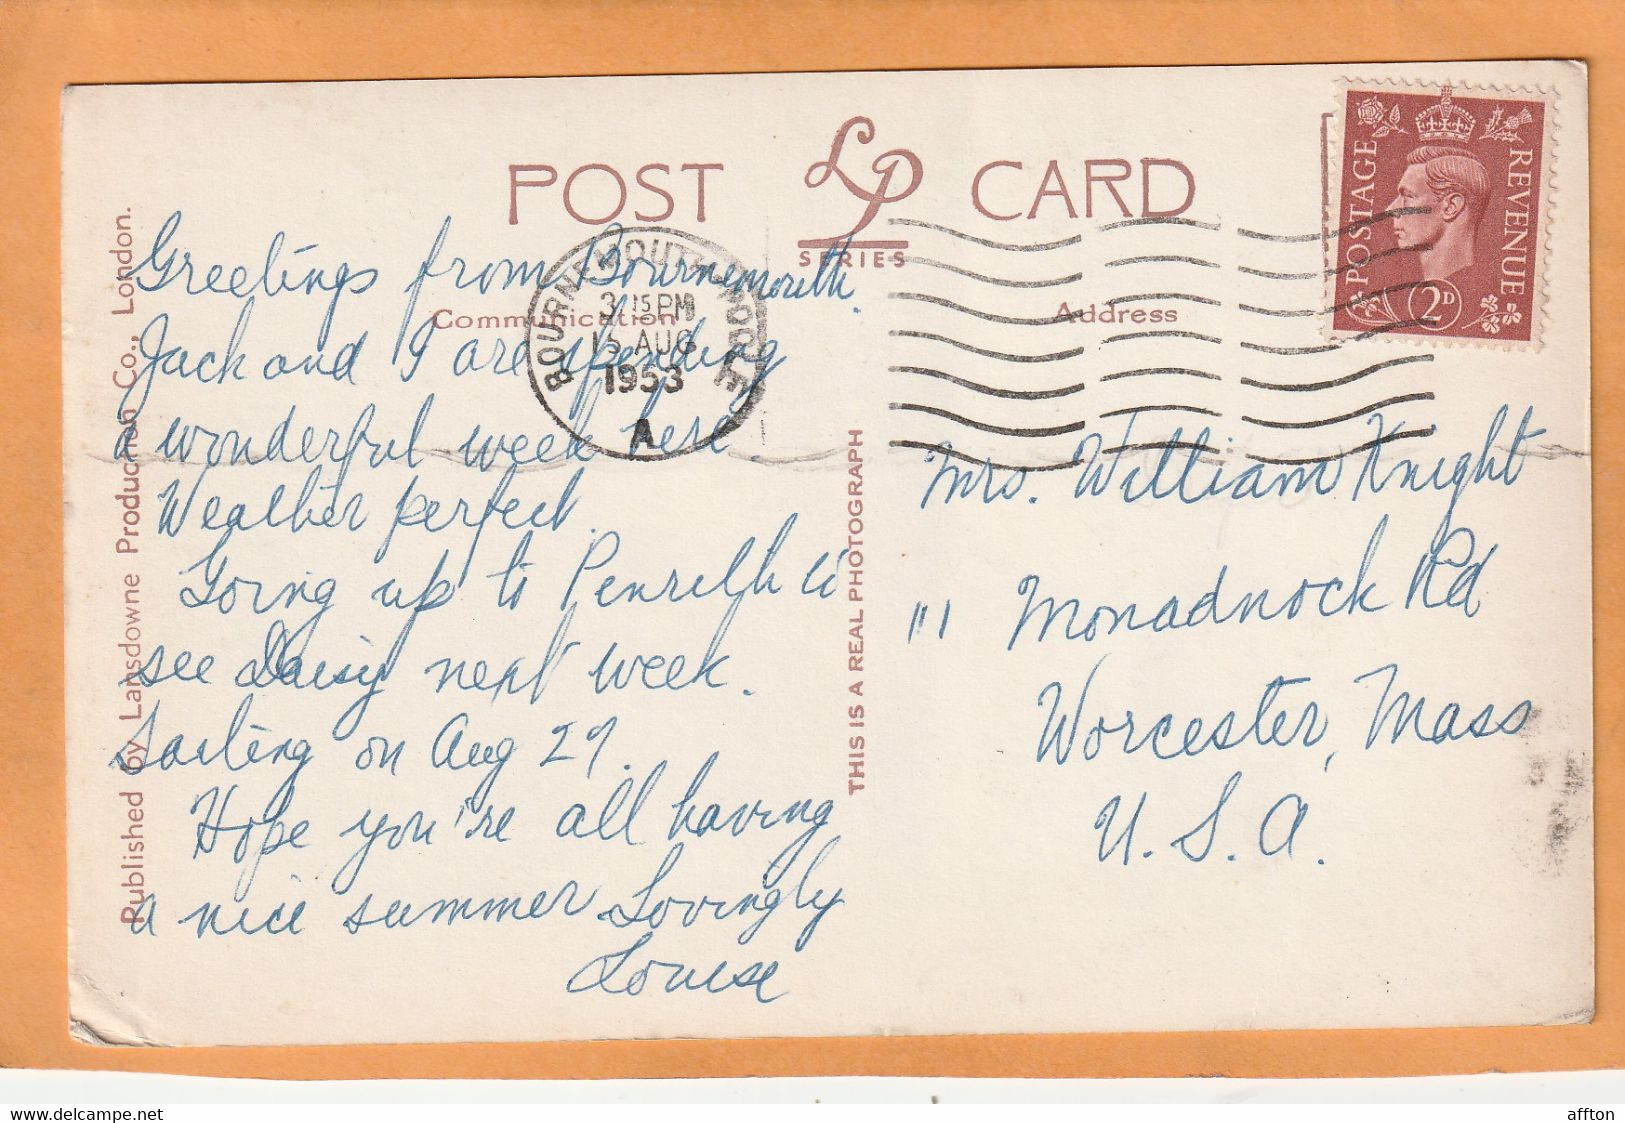 POST LP CARD
SERIES
Communication
Address
POSTAGE REVENUE
2D
BOURNEMOUTH-POOLE
3 15 PM
AUG
1953
A
Greetings from Bournemouth.
Jack and I are spending
a wonderful week here
Weather perfect.
Going up to Penrith to
see Daisy next week.
Sailing on Aug 29.
Hope you're all having
a nice summer Lovingly
Louise
Mrs. William Knight
111 Monadnock Rd
Worcester, Mass
U.S.A.
Published by Lansdowne Production Co., London.
THIS IS A REAL PHOTOGRAPH
delcampe.net
affton